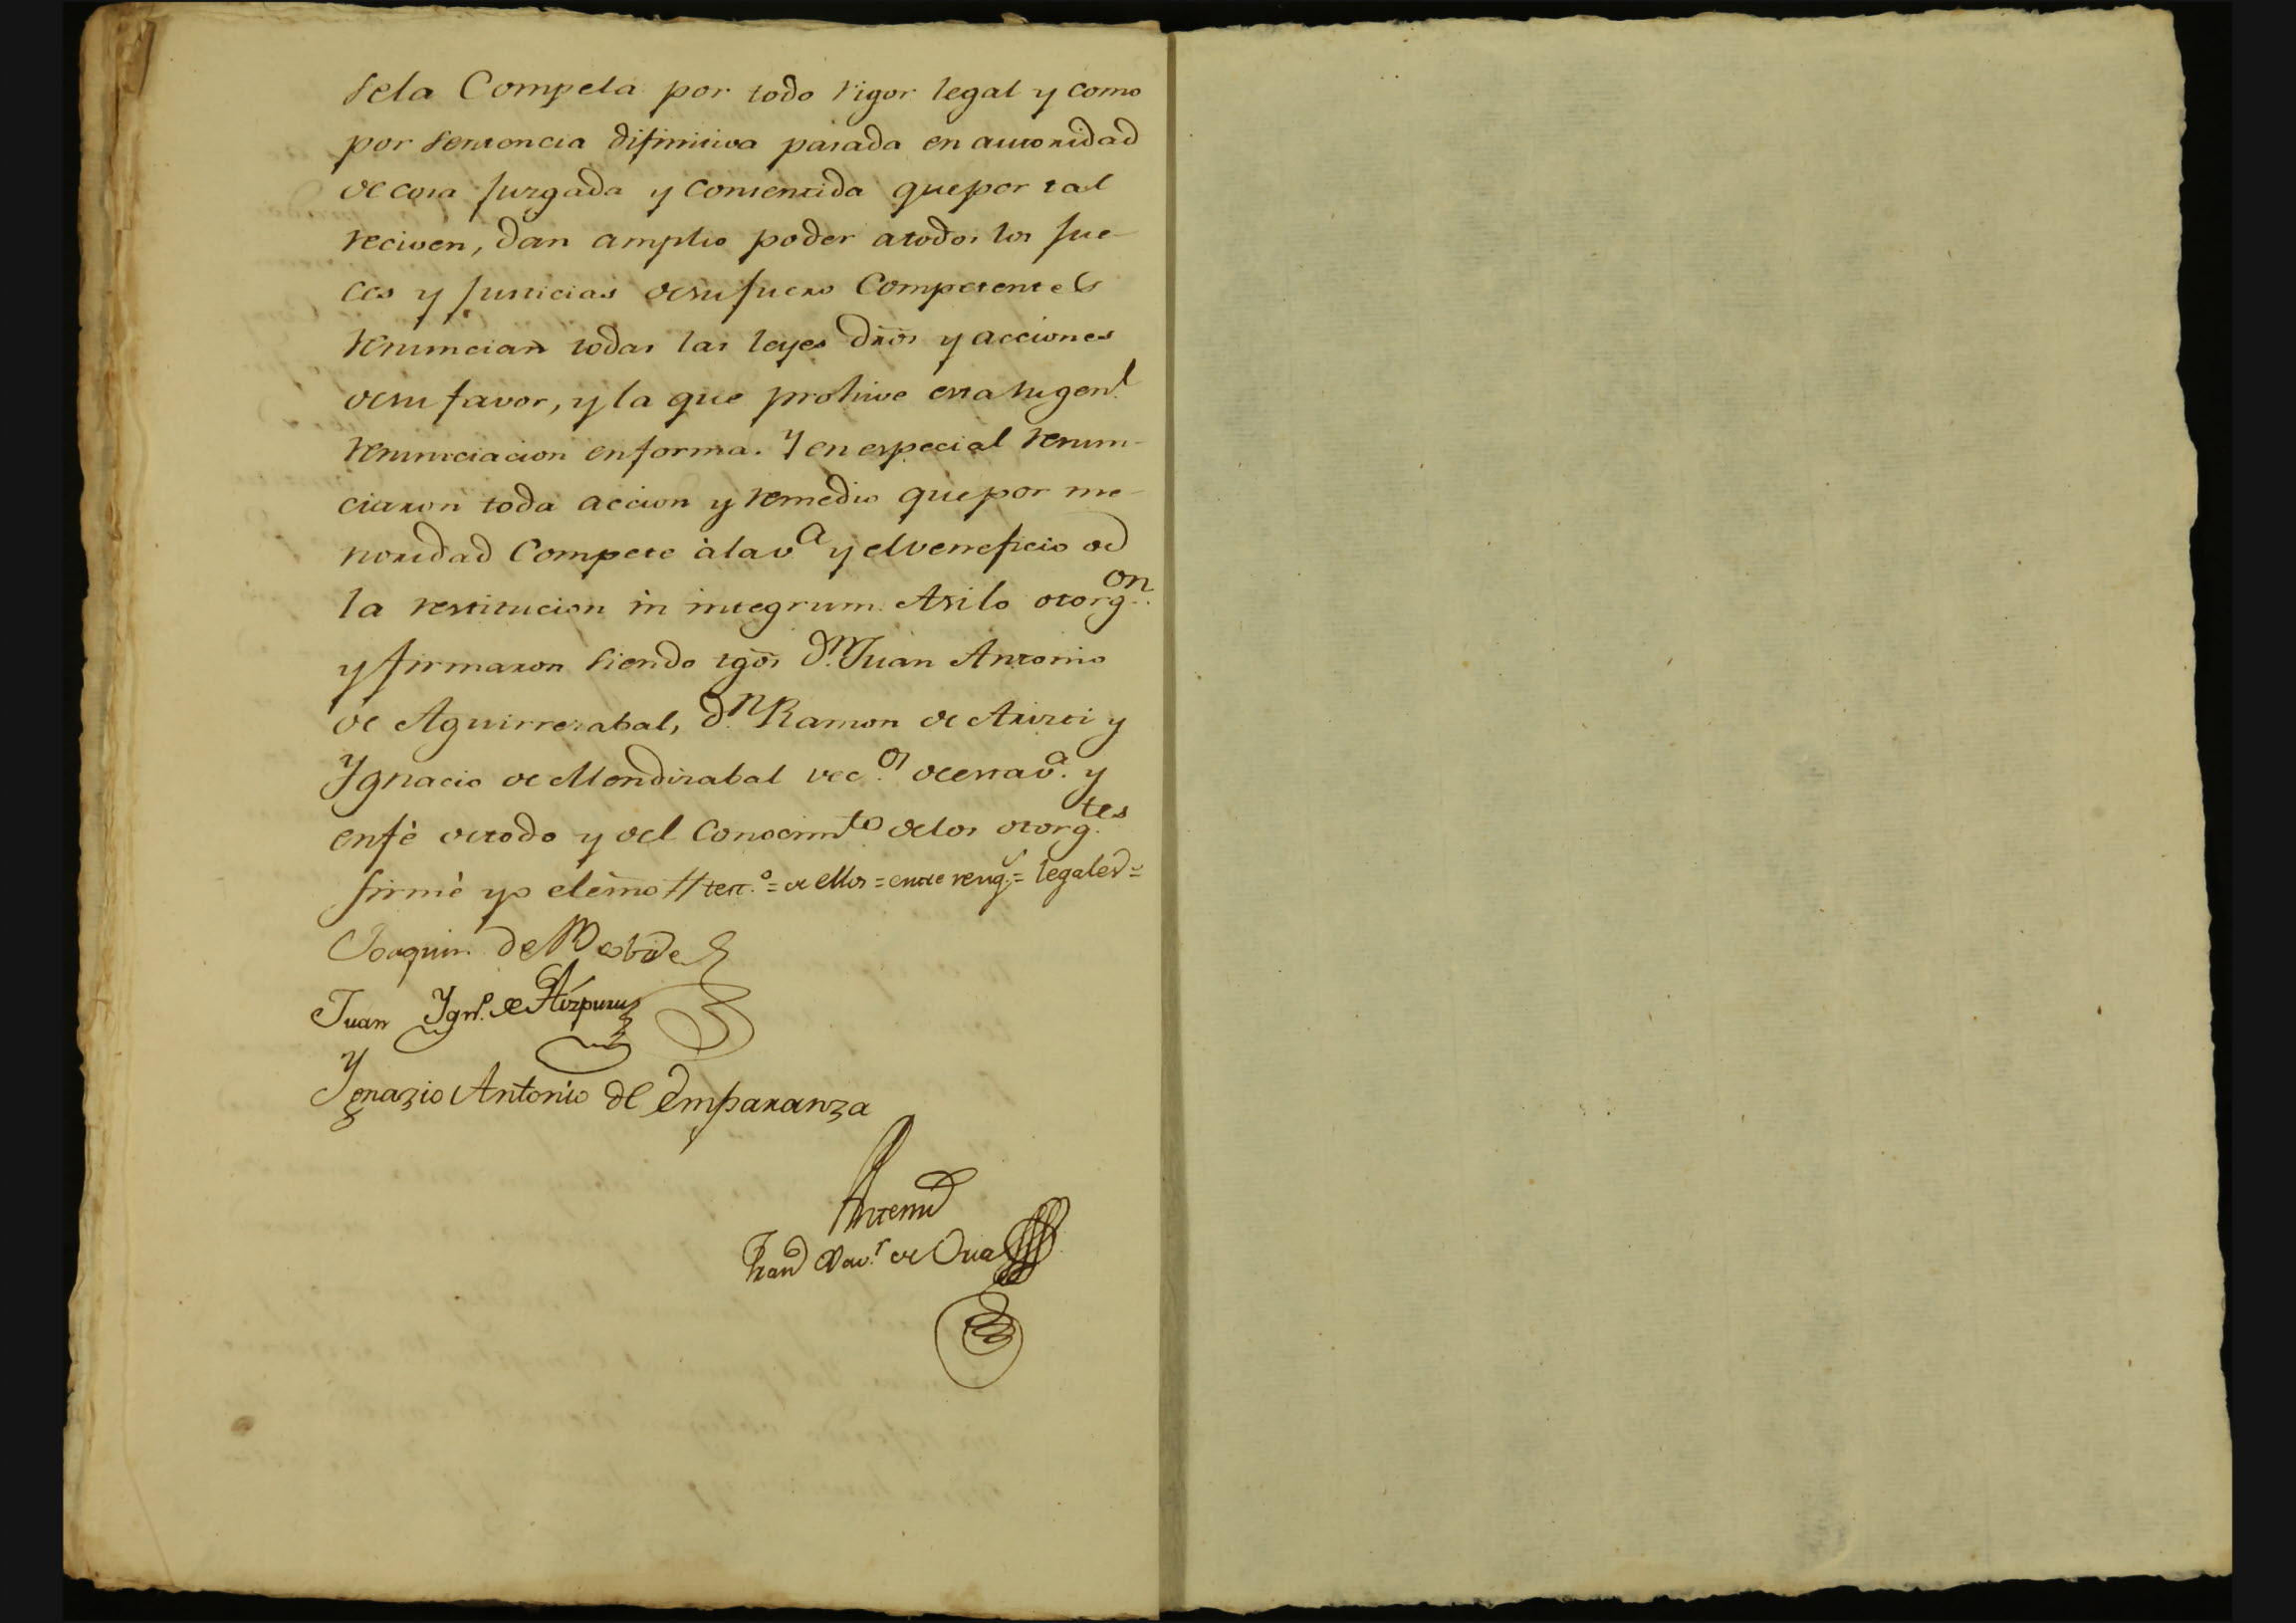 sela Compela por todo rigor legal y como
por sentencia difinitiva pasada en autoridad
de cosa Juzgada y Consentida que por tal
reciven, dan amplio poder a todos los Jue-
ces y Justicias de su fuero Competentes
renuncian todas las leyes dr̃os y acciones
de su favor, y la que prohive esta su gen.l
renunciacion en forma. Y en especial renun-
ciaron toda accion y remedio que por me-
noridad Compete à la v.a y el veneficio de
la restitucion in integrum. Asi lo otorg.on
y firmaron siendo tgõs D.n Juan Antonio
de Aguirrezabal, D.n Ramon de Arizti y
Ygnacio de Mendizabal vec.os de esta v.a y
en fè de todo y del Conocim.to de los otorg.tes
firmè yo el es̃no // test.o = de ellos = entre reng.s = legales =
Joaquin de
Juan Ygn.o de Aizpuru
Ygnazio Antonio de Emparanza
Antemi
Fran.co Xav.r de Oria